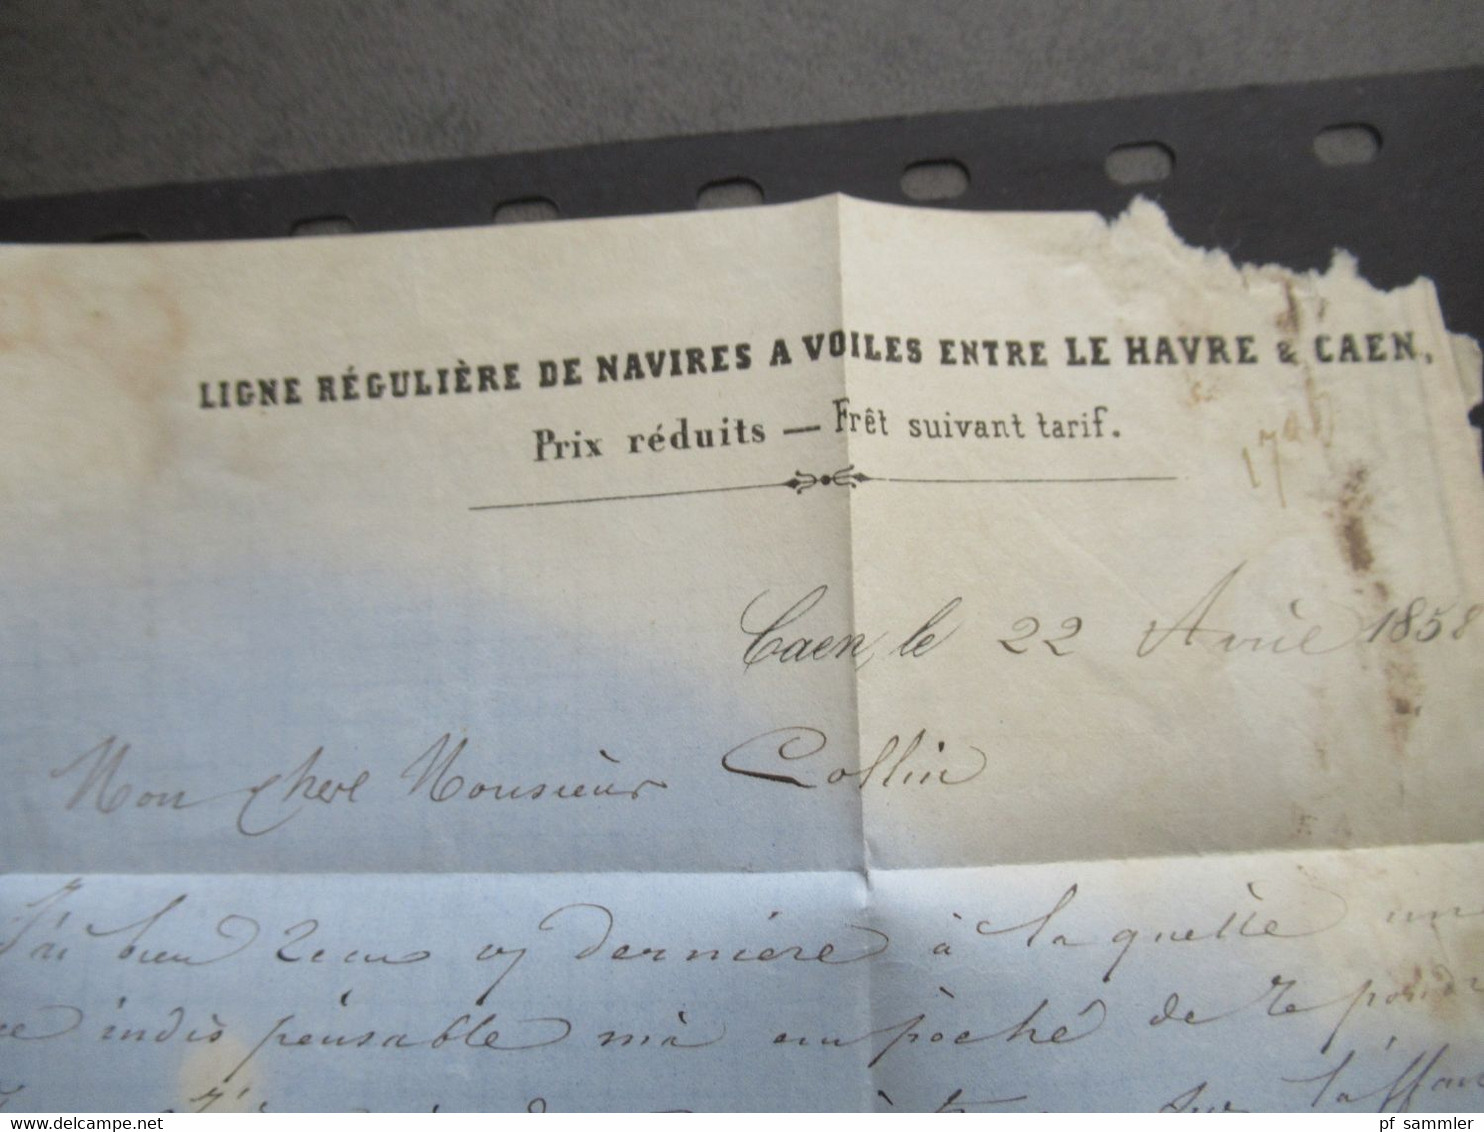 LIGNE RÉGULIÈRE DE NAVIRES A VOILES ENTRE LE HAVRE & CAEN,
Prix réduits — Frêt suivant tarif.
Caen, le 22 Avril 1858
Mon chere Monsieur Collin
J'ai bien recu vj derniere à la quelle un
indispensable m'à empoché de repondr
sur l'affai
pf_sammler